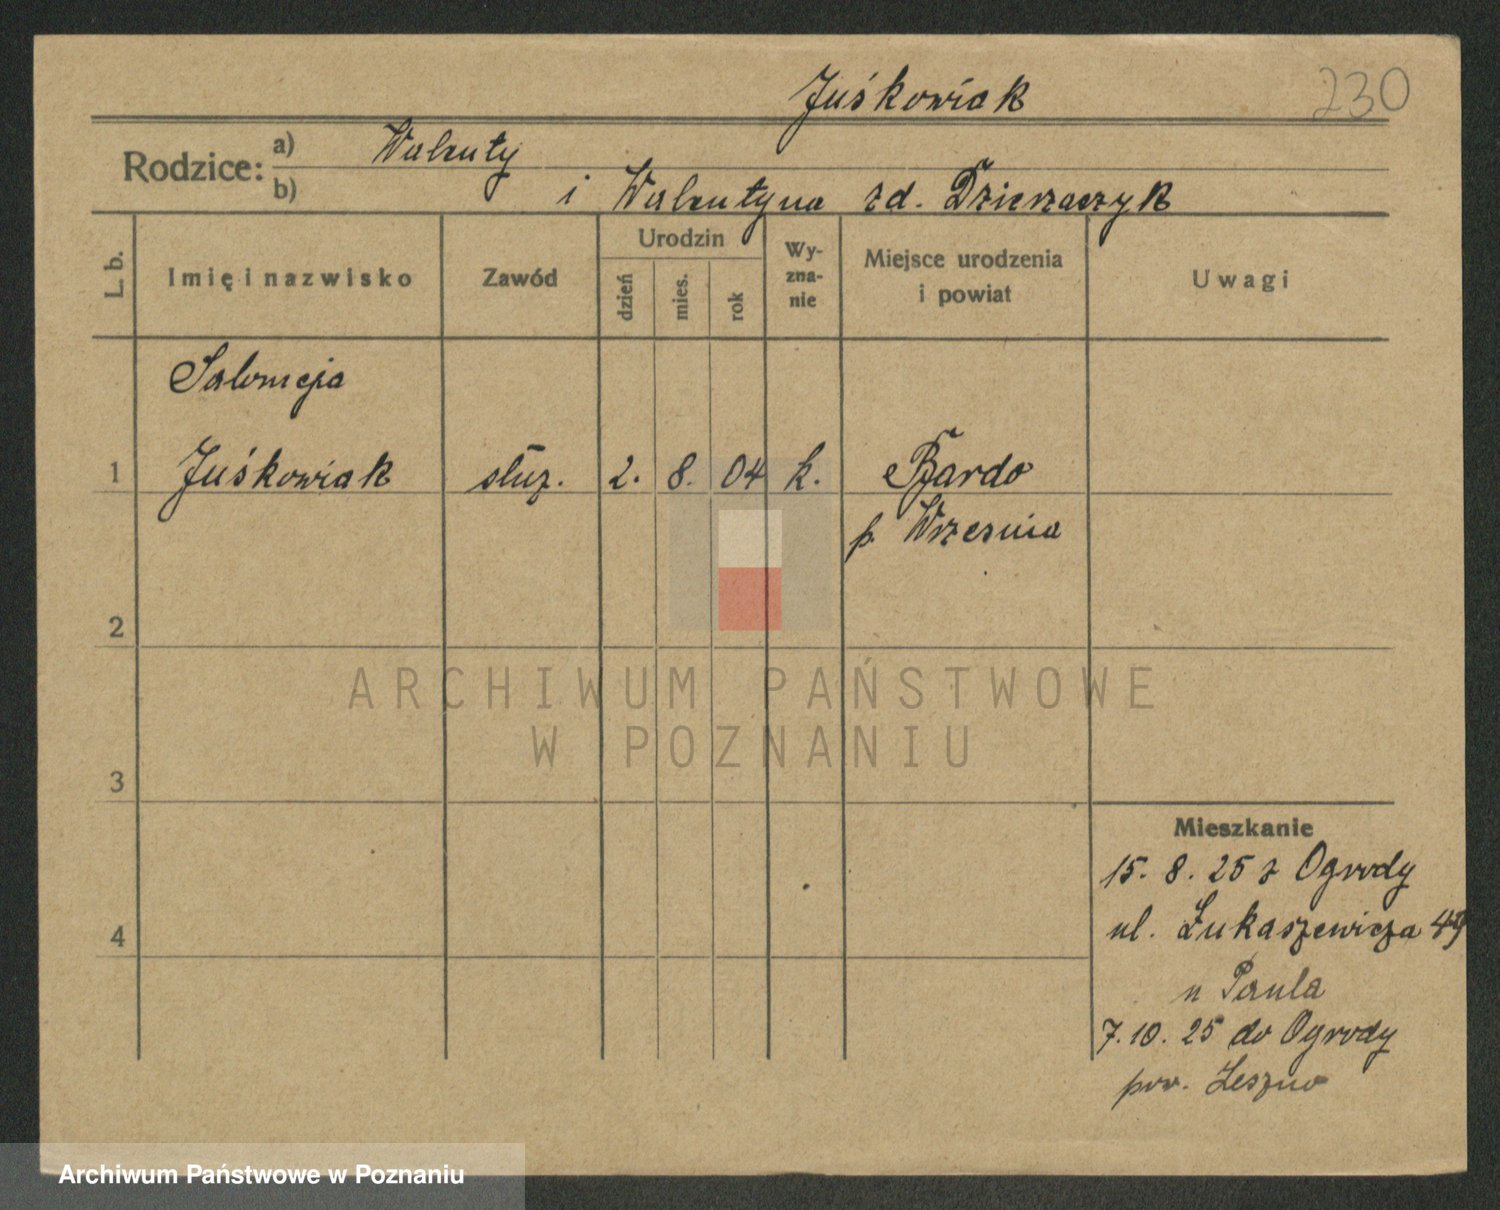 Juśkowiak 230
Rodzice: a) Walenty
b) i Walentyna zd. Dzierzaczyk
L. b. Imię i nazwisko Zawód Urodzin dzień mies. rok Wy-zna-nie Miejsce urodzenia i powiat Uwagi
Salomeja
1 Juśkowiak służ. 2. 8. 04 k. Bardo
p. Wrzesnia
2
ARCHIWUM PAŃSTWOWE
W POZNANIU
3
Mieszkanie
15. 8. 25 z Ogrody
4 ul. Łukaszewicza
u Paula
7. 10. 25 do Ogrody
pow. Leszno
Archiwum Państwowe w Poznaniu